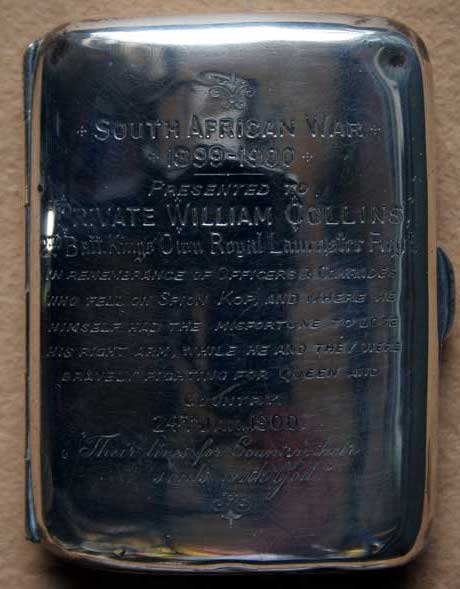 SOUTH AFRICAN WAR
1899-1900
PRESENTED TO
PRIVATE WILLIAM COLLINS,
Batt. King's Own Royal Lancaster Regt.
IN REMEMBRANCE OF OFFICERS & COMRADES
WHO FELL ON SPION KOP, AND WHERE HE
HIMSELF HAD THE MISFORTUNE TO LOSE
HIS RIGHT ARM, WHILE HE AND THEY WERE
BRAVELY FIGHTING FOR QUEEN AND
COUNTRY
24TH JAN. 1900.
Their lives for Country their
souls with God